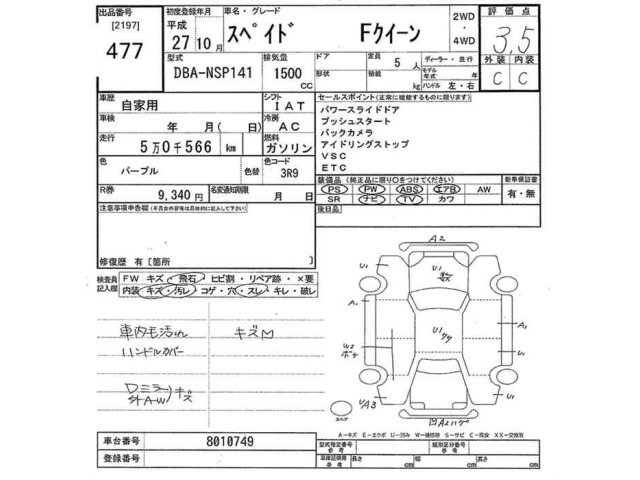 出品番号 初度登録年月 車名・グレード 2WD 評価点
[2197] 平成 スペイド Fクイーン ・ 3,5
477 27 10 月 4WD
型式 排気量 ドア 定員 ディーラー・並行 外装 内装
DBA-NSP141 1500 CC 形状 5 人 積載 kg モデル年式 年 ハンドル 左・右 C C
車歴 自家用 シフト I AT セールスポイント(正常に機能するものに限ります)
車検 年 月( 日) 冷房 AC パワースライドドア
走行 5 万 0 千 566 km 燃料 ガソリン プッシュスタート
バックカメラ
アイドリングストップ
VSC
ETC
色 パープル 色替 色コード 3R9
装備品(純正品に限り○をつけてください) 新車保証書
R券 9,340 円 名変通知期限 月 日 PS PW ABS エアB AW 有・無
SR ナビ TV カワ
注意事項申告欄(不具合内容等は具体的に記入して下さい) 後日品
修復歴 有[箇所 ]
検査員記入欄 FW キズ・飛石・ヒビ割・リペア跡・×要
内装 キズ・汚レ コゲ・穴・スレ・キレ・破レ
車内毛活れ キズM
ハンドルカバー
Dミラー キズ
外AW
A2
U1
A1 A1
U1
W2
ボケ
A3 U1
A2ハゲ
スペア
A-キズ E-エクボ U-凹み W-補修跡 S-サビ C-腐食 XX-交換済
車台番号 8010749 型式指定番号 参考 類別区分番号 参考
登録番号 車体証明用 参考 長さ cm 幅 cm 高さ cm